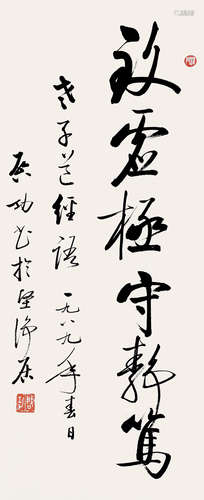 致虚極守静篤
老子道經語一九八九年春日
启功書於堅淨居